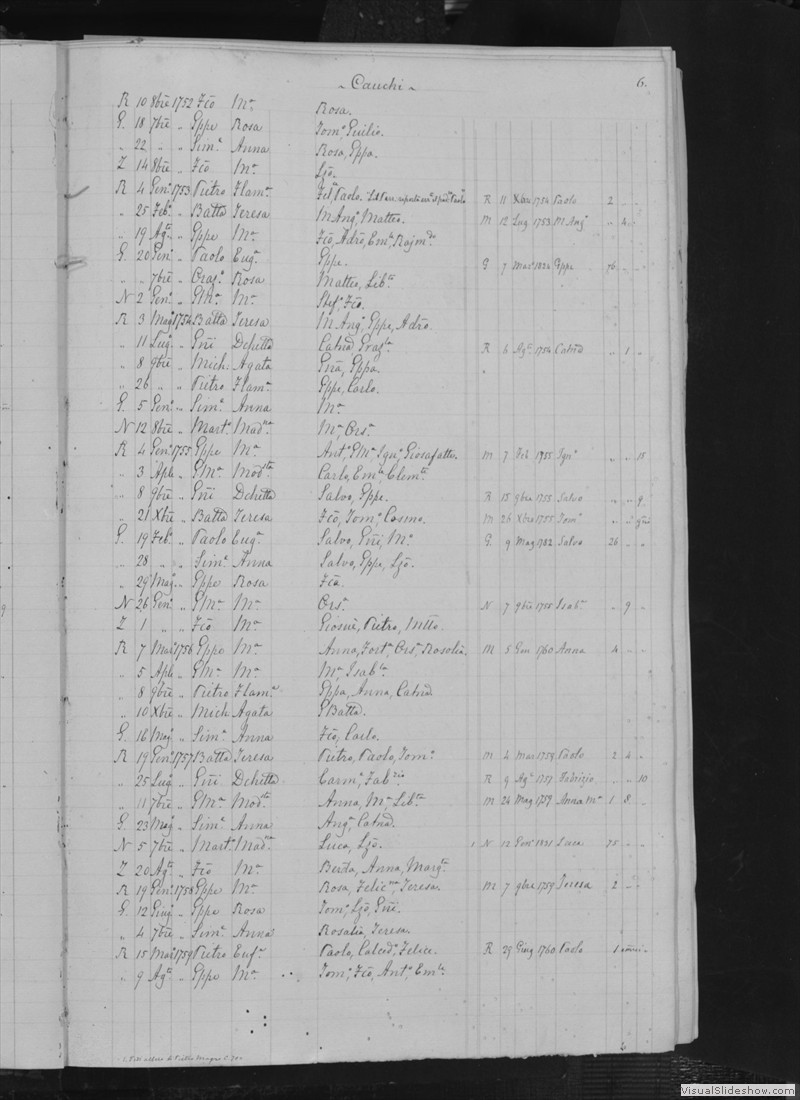 ~ Cauchi ~ 6.
R 10 8bre 1752 Fco Ma Rosa.
G. 18 7bre " Gppe Rosa Toma Giulio.
" 22 " " Sima Anna Rosa, Gppa.
Z 14 8bre " Fco Ma Lzo.
R 4 Gen. 1753 Pietro Flama Paolo. R 11 Xbre 1754 Paolo 2 " "
" 25 Feb. " Batta Teresa M Ang. Matteo. M 12 Lug 1753 M Ang. " 4 "
" 19 Agto " Gppe Ma Fco, Adro, Ema, Rajmdo
G. 20 Gen. " Paolo Euga Gppe. G 7 Mar. 1824 Gppe 76 " "
" 7bre " Oraz. Rosa Matteo, Libta
N 2 Gen. " GMa Ma Stefo, Fco.
R 3 Mag. 1754 Batta Teresa M Ang. Gppe, Adro.
" 11 Lug. " Gni Dehetta Catnd Grazla R 6 Agto 1754 Catnd " 1 "
" 8 9bre " Mich. Agata Gna, Gppa.
" 26 " " Pietro Flama Gppe, Carlo.
G. 5 Gen. " Sima Anna Ma
N 12 8bre " Marta Madna Ma Orsa
R 4 Gen. 1755 Gppe Ma Anto GMa Igno Giosafatto. M 7 Feb 1755 Igno " " 15
" 3 Aple " GMa Modta Carlo, Emle, Clemte
" 8 9bre " Gni Dehetta Salvo, Gppe. R 15 9bre 1755 Salvo " " 9
" 21 Xbre " Batta Teresa Fco, Tomo Cosmo. M 26 Xbre 1755 Tomo
G. 19 Feb. " Paolo Euga Salvo, Gni, Ma G. 9 Mag. 1782 Salvo 26 " "
" 28 " " Sima Anna Salvo, Gppe, Lzo.
" 29 Mag. " Gppe Rosa Fca.
N 26 Gen. " GMa Ma Orsa N 7 9bre 1755 Isaba " 9 "
Z 1 " " Fco Ma Giosuè, Pietro, Mtto.
R 7 Mar. 1756 Gppe Ma Anna, Forta Orsa Rosolia. M 5 Gen 1760 Anna 4 " "
" 5 Aple " GMa Ma Ma Isabla
" 8 9bre " Pietro Flama Gppa, Anna, Catnd
" 10 Xbre " Mich Agata GBatta.
G. 16 Mag. " Sima Anna Fco, Carlo.
R 19 Gen. 1757 Batta Teresa Pietro, Paolo, Tomo M 4 Mar 1759 Paolo 2 4 "
" 25 Lug " Gni Dehetta Carmo, Fabzio R 9 Ago 1757 Fabrizio " " 10
" 11 7bre " GMa Modta Anna, Ma Libta M 24 Mag 1759 Anna Ma 1 8 "
G. 23 Mag. " Sima Anna Ango Catnd.
N 5 7bre " Marta Madna Luca, Lzo. 1 N 12 Gen. 1831 Luca 75 " "
Z 20 Agto " Fco Ma Berda, Anna, Margta
R 19 Gen. 1758 Gppe Ma Rosa, Felicna, Teresa. M 7 9bre 1759 Teresa 2 " "
G. 12 Giug " Gppe Rosa Tomo, Lzo, Gni.
" 4 7bre " Sima Anna Rosalia, Teresa.
R 15 Mar. 1759 Pietro Eufa Paolo, Calcedo, Felice. R 29 Giug 1760 Paolo 1
" 9 Agto " Gppe Ma Tomo, Fco, Anto, Emle
VisualSlideshow.com